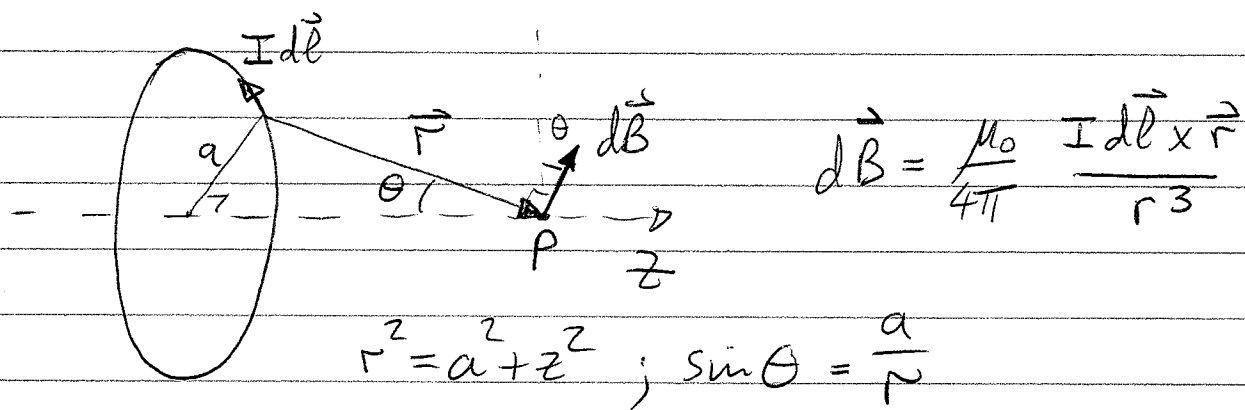 I dl⃗
a
r⃗
θ
θ
dB⃗
P
z
dB⃗ = μ₀/4π I dl⃗ x r⃗ / r³
r² = a² + z² ; sin θ = a/r